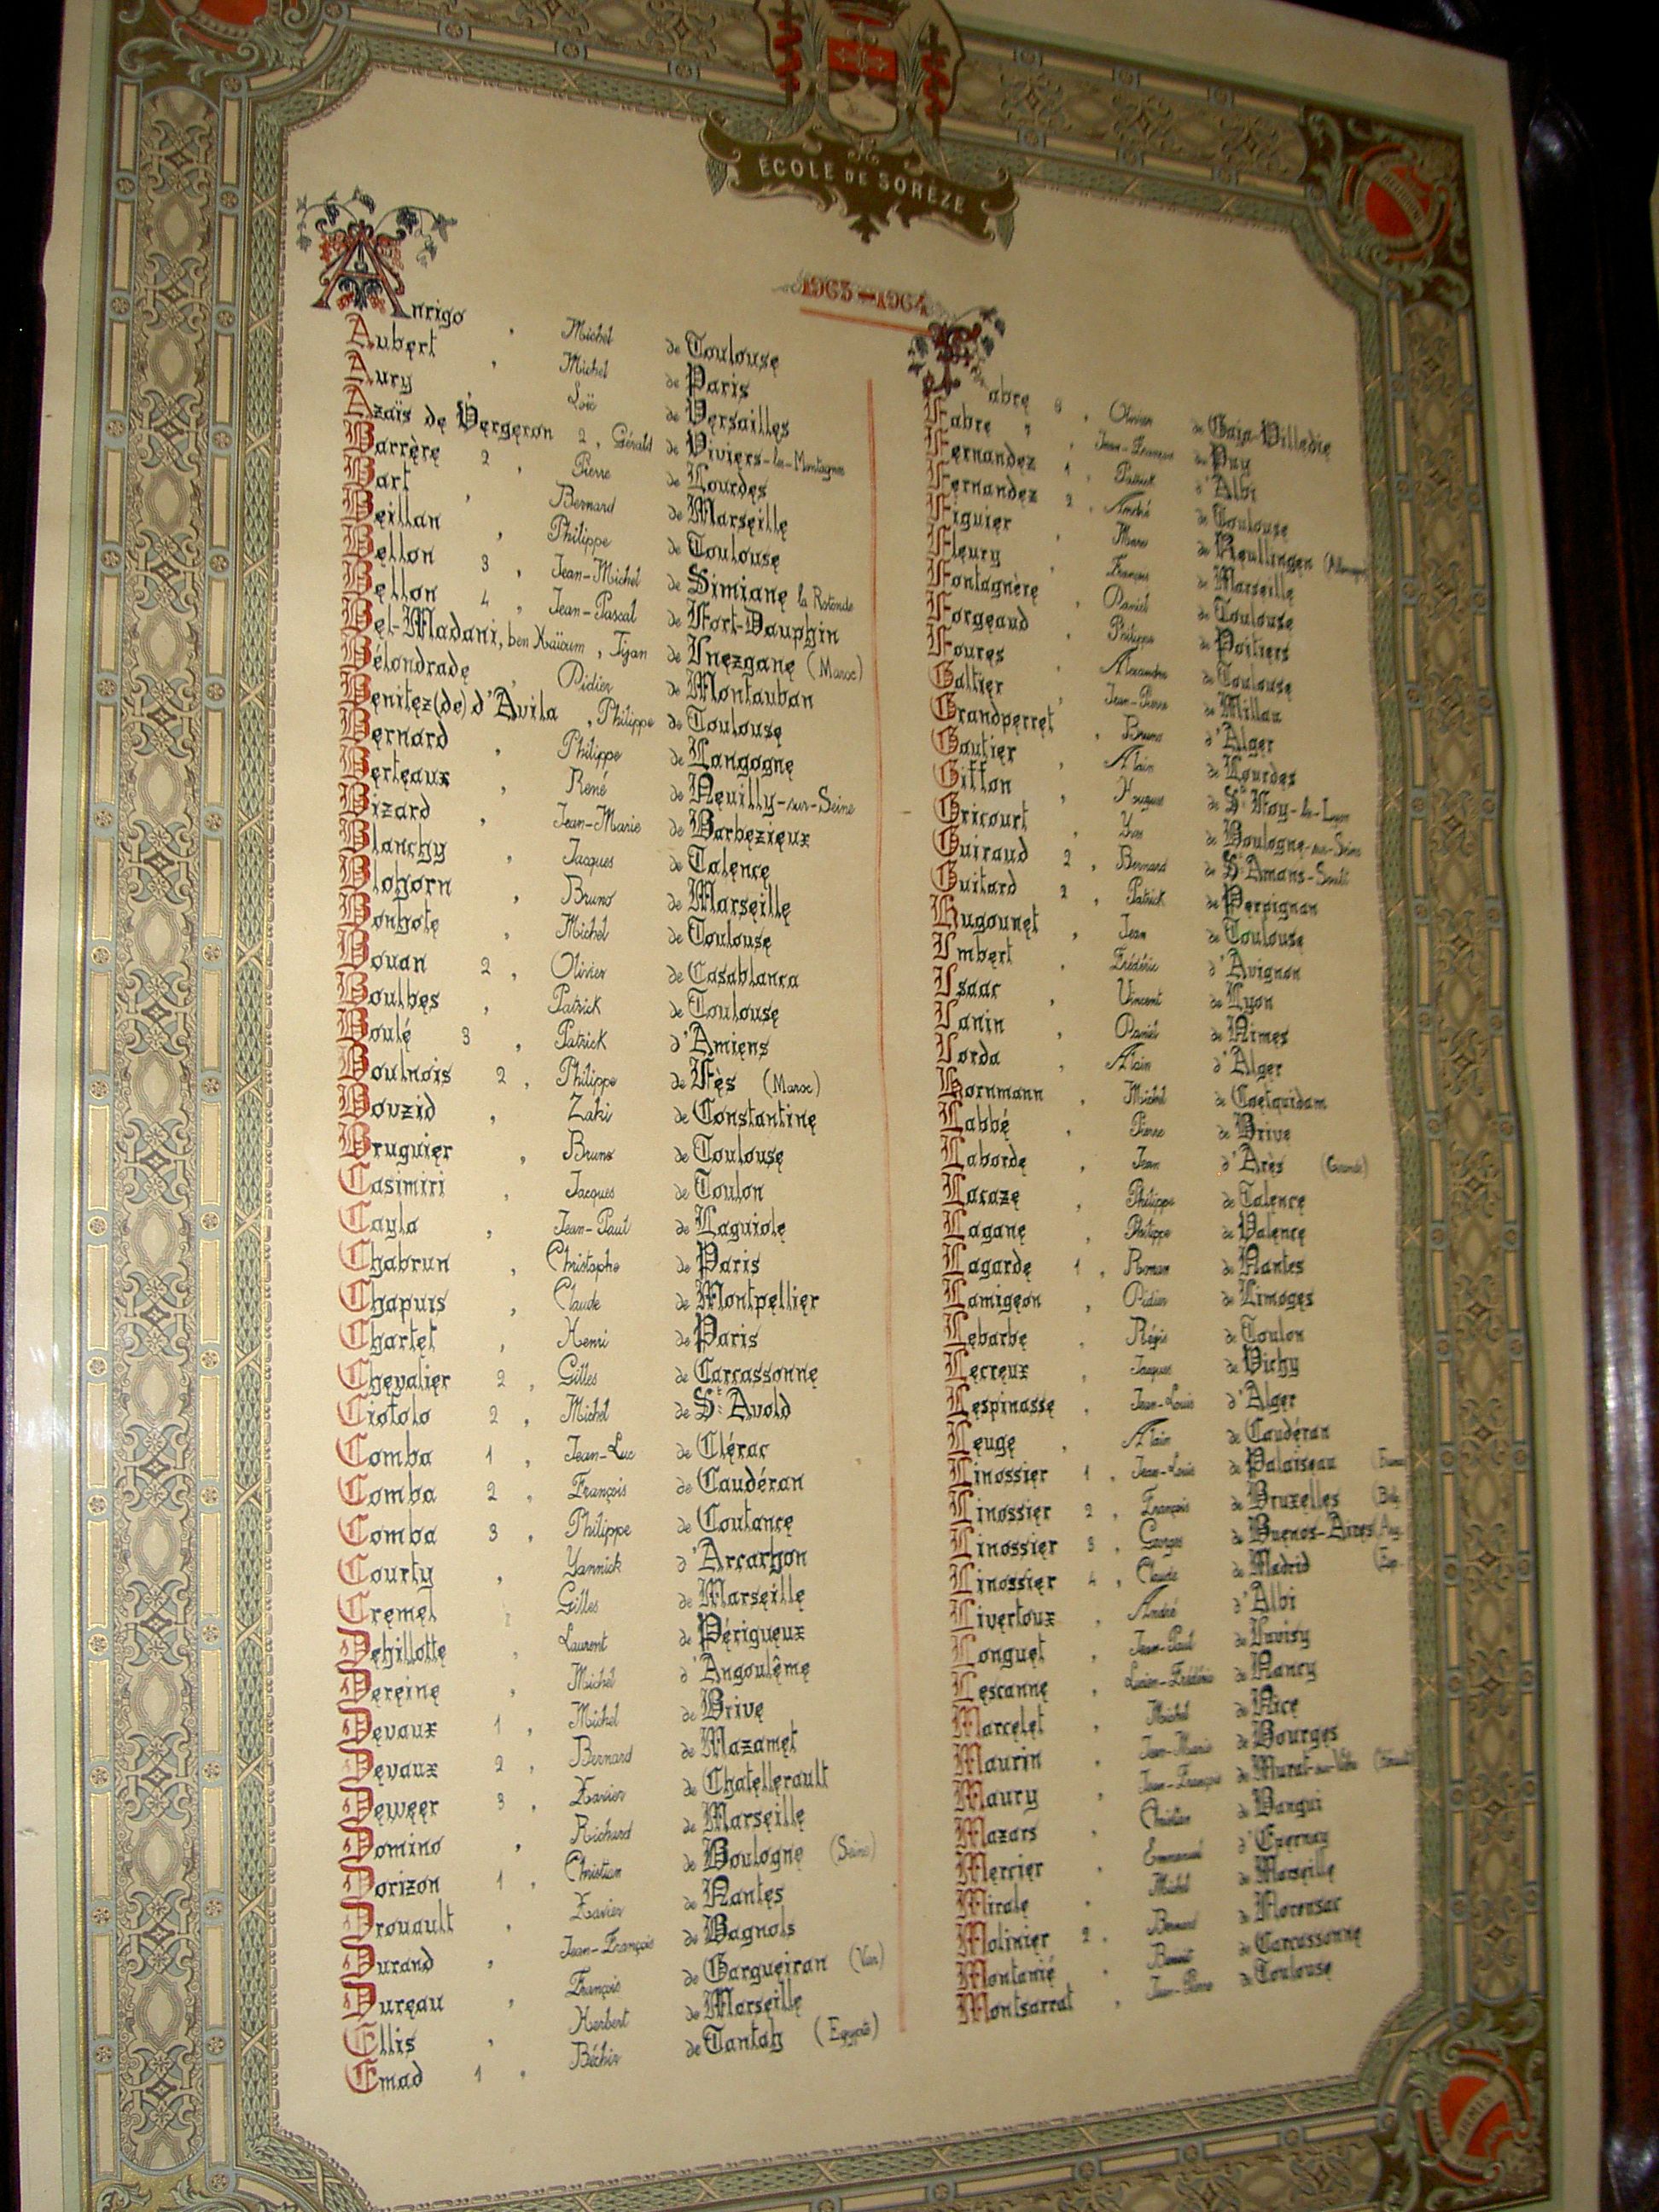 ÉCOLE DE SORÈZE
1963-1964
Anrigo , Michel de Toulouse
Aubert , Michel de Paris
Aury Loïc de Versailles
Azaïs de Vergeron 2 , Gérald de Viviers-les-Montagnes
Barrère 2 , Pierre de Lourdes
Bart , Bernard de Marseille
Beillan , Philippe de Toulouse
Bellon 3 , Jean-Michel de Simiane la Rotonde
Bellon 4 , Jean-Pascal de Fort-Dauphin
Bel-Madani, ben Kaïoum , Tijan de Inezgane (Maroc)
Bélondrade , Didier de Montauban
Benitez (de) d'Avila , Philippe de Toulouse
Bernard , Philippe de Langogne
Berteaux , René de Neuilly-sur-Seine
Bizard , Jean-Marie de Barbezieux
Blanchy , Jacques de Talence
Blohorn , Bruno de Marseille
Bonhote , Michel de Toulouse
Bouan 2 , Olivier de Casablanca
Boulbes , Patrick de Toulouse
Boulé 3 , Patrick d'Amiens
Boulnois 2 , Philippe de Fès (Maroc)
Bouzid , Zaki de Constantine
Bruguier , Bruno de Toulouse
Casimiri , Jacques de Toulon
Cayla , Jean-Paul de Laguiole
Chabrun , Christophe de Paris
Chapuis , Claude de Montpellier
Chartet , Henri de Paris
Chevalier 2 , Gilles de Carcassonne
Ciofolo 2 , Michel de St Avold
Comba 1 , Jean-Luc de Clérac
Comba 2 , François de Caudéran
Comba 3 , Philippe de Coutance
Courty , Yannick d'Arcachon
Cremel , Gilles de Marseille
Dehillotte , Laurent de Périgueux
Dereine , Michel d'Angoulême
Devaux 1 , Michel de Brive
Devaux 2 , Bernard de Mazamet
Deweer 3 , Xavier de Chatellerault
Domino , Richard de Marseille
Dorizon 1 , Christian de Boulogne (Seine)
Drouault , Xavier de Nantes
Durand , Jean-François de Bagnols
Dureau , François de Carqueiran (Var)
Ellis , Herbert de Marseille
Emad 1 , Béchir de Tantah (Egypte)
Fabre 8 , Olivier de Gaia-Villedie
Fabre , Jean-François de Puy
Fernandez 1 , Patrick d'Albi
Fernandez 2 , André de Toulouse
Figuier , Marc de Reutlingen (Allemagne)
Fleury , François de Marseille
Fontagnère , Daniel de Toulouse
Forgeaud , Philippe de Poitiers
Foures , Alexandre de Toulouse
Galtier , Jean-Pierre de Millau
Grandperret , Bruno d'Alger
Gautier , Alain de Lourdes
Giffon , Hugues de St Foy-les-Lyon
Gricourt , Yves de Boulogne-sur-Seine
Guiraud 2 , Bernard de St Amans-Soult
Guitard 2 , Patrick de Perpignan
Hugounet , Jean de Toulouse
Imbert , Frédéric d'Avignon
Isaac , Vincent de Lyon
Janin , Daniel de Nimes
Jorda , Alain d'Alger
Kornmann , Michel de Coetquidam
Labbé , Pierre de Brive
Laborde , Jean d'Arès (Gironde)
Lacaze , Philippe de Talence
Lagane , Philippe de Valence
Lagarde 1 , Roman de Nantes
Lamigeon , Didier de Limoges
Lebarbe , Régis de Toulon
Lecreux , Jacques de Vichy
Lespinasse , Jean-Louis d'Alger
Leuge , Alain de Caudéran
Linossier 1 , Jean-Louis de Palaiseau
Linossier 2 , François de Bruxelles (Belg.
Linossier 3 , Georges de Buenos-Aires (Arg.
Linossier 4 , Claude de Madrid (Esp.
Livertoux , André d'Albi
Longuet , Jean-Paul de Juvisy
Lescanne , Lucien-Frédéric de Nancy
Marcelet , Michel de Nice
Maurin , Jean-Marie de Bourges
Maury , Jean-François de Murat-sur-Vèbre (Hérault)
Mazars , Christian de Bangui
Mercier , Emmanuel d'Epernay
Mirale , Michel de Marseille
Molinier 2 , Bernard de Florensac
Montanié , Benoit de Carcassonne
Montsarrat , Jean-Pierre de Toulouse